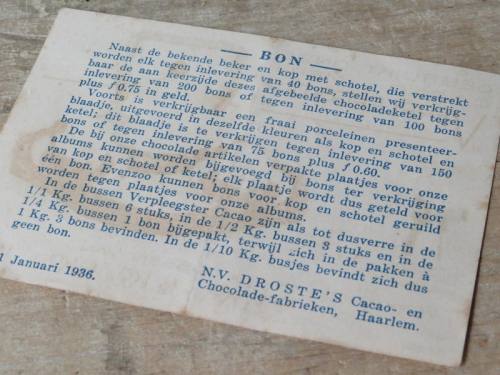 BON
Naast de bekende beker en kop met schotel, die verstrekt
worden elk tegen inlevering van 40 bons, stellen wij verkrijg-
baar de aan keerzijde dezes afgebeelde chocoladeketel tegen
inlevering van 200 bons of tegen inlevering van 100 bons
plus f 0.75 in geld.
Voorts is verkrijgbaar een fraai porceleinen presenteer-
blaadje, uitgevoerd in dezelfde kleuren als kop en schotel en
ketel; dit blaadje is te verkrijgen tegen inlevering van 150
bons of tegen inlevering van 75 bons plus f 0.60.
De bij onze chocolade artikelen verpakte plaatjes voor onze
albums kunnen worden bijgevoegd bij bons ter verkrijging
van kop en schotel of ketel; elk plaatje wordt dus geteld voor
één bon. Evenzoo kunnen bons voor kop en schotel geruild
worden tegen plaatjes voor onze albums.
In de bussen Verpleegster Cacao zijn als tot dusverre in de
1/1 Kg. bussen 6 stuks, in de 1/2 Kg. bussen 3 stuks en in de
1/4 Kg. bussen 1 bon bijgepakt, terwijl zich in de pakken à
1 Kg. 2 bons bevinden. In de 1/10 Kg. busjes bevindt zich dus
geen bon.
1 Januari 1936.
N.V. DROSTE'S Cacao- en
Chocolade-fabrieken, Haarlem.